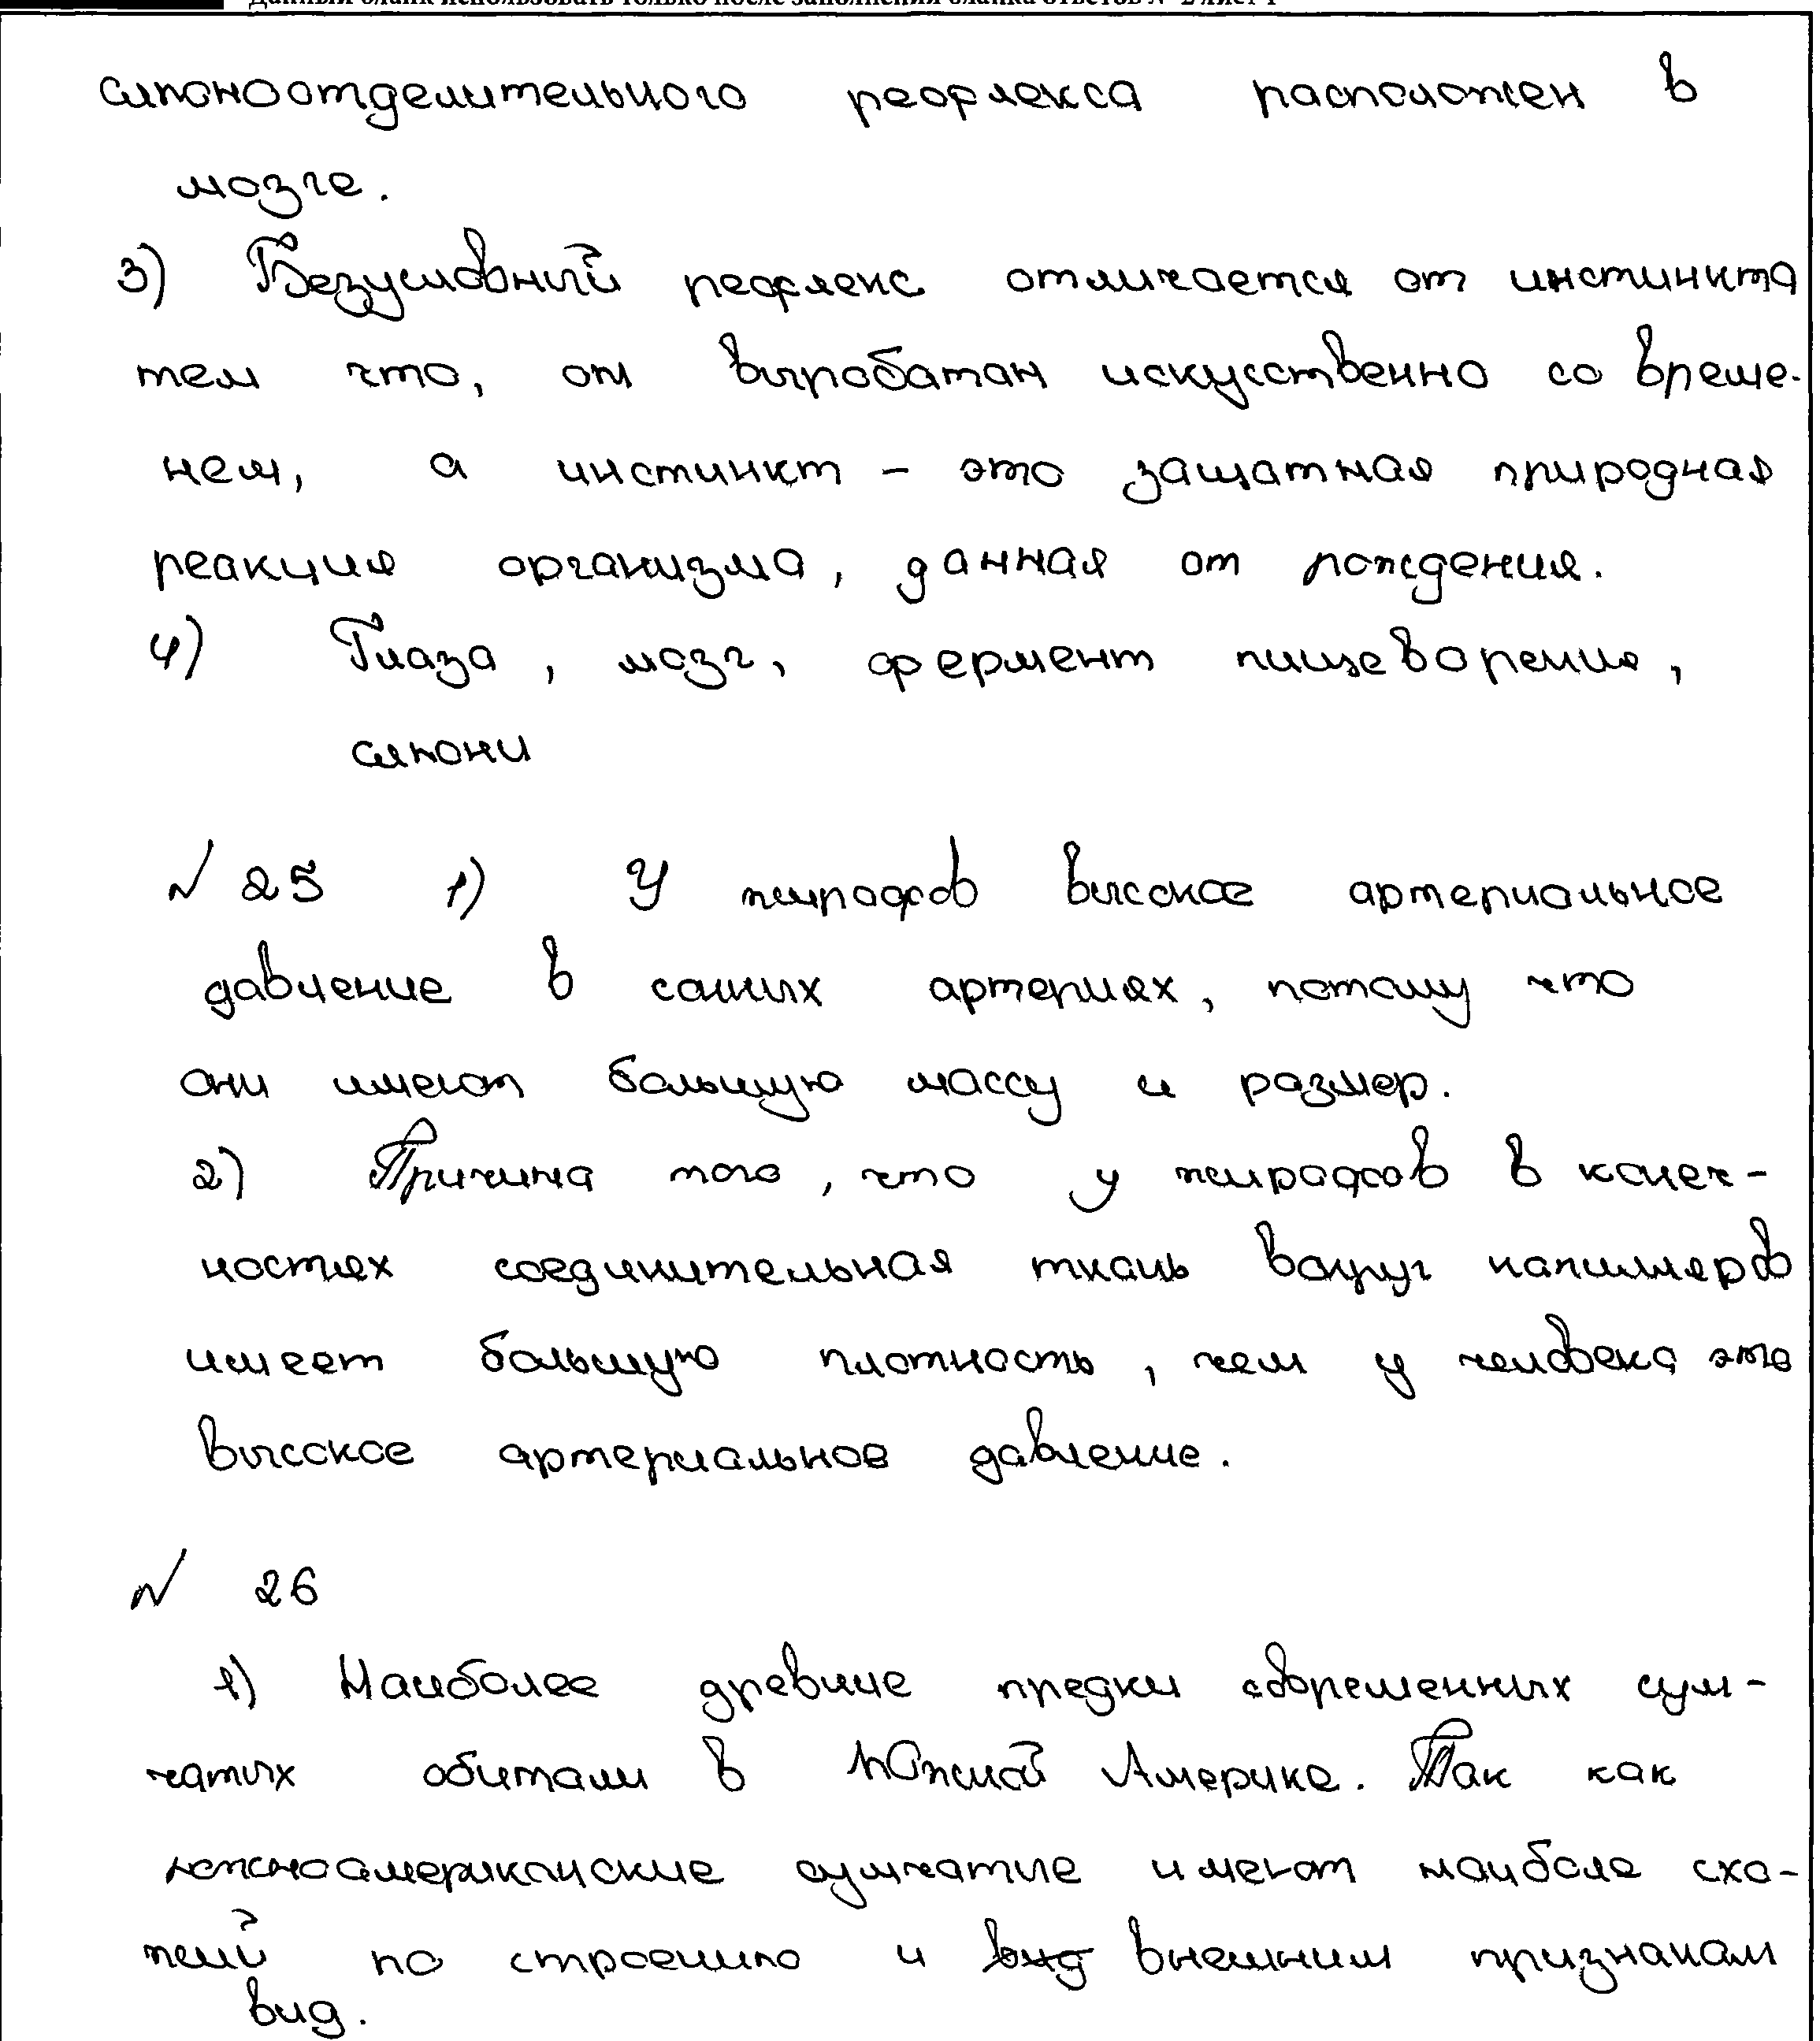 Данный бланк использовать только после заполнения бланка ответов № 2 лист 1
слюноотделительного рефлекса расположен в
мозге.
3) Безусловный рефлекс отличается от инстинкта
тем что, он выработан искусственно со време-
нем, а инстинкт - это защатная природная
реакция организма, данная от рождения.
4) Глаза, мозг, фермент пищеворения,
слюни
№ 25 1) У жирафов высокое артериальное
давление в самих артериях, потому что
они имеют большую массу и размер.
2) Причина того, что у жирафов в конеч-
ностях соединительная ткань вокруг капилляров
имеет большую плотность, чем у человека это
высокое артериальное давление.
№ 26
1) Наиболее древние предки современных сум-
чатых обитали в Южной Америке. Так как
южноамериканские сумчатые имеют наиболе схо-
жий по строению и вид внешним признакам
вид.